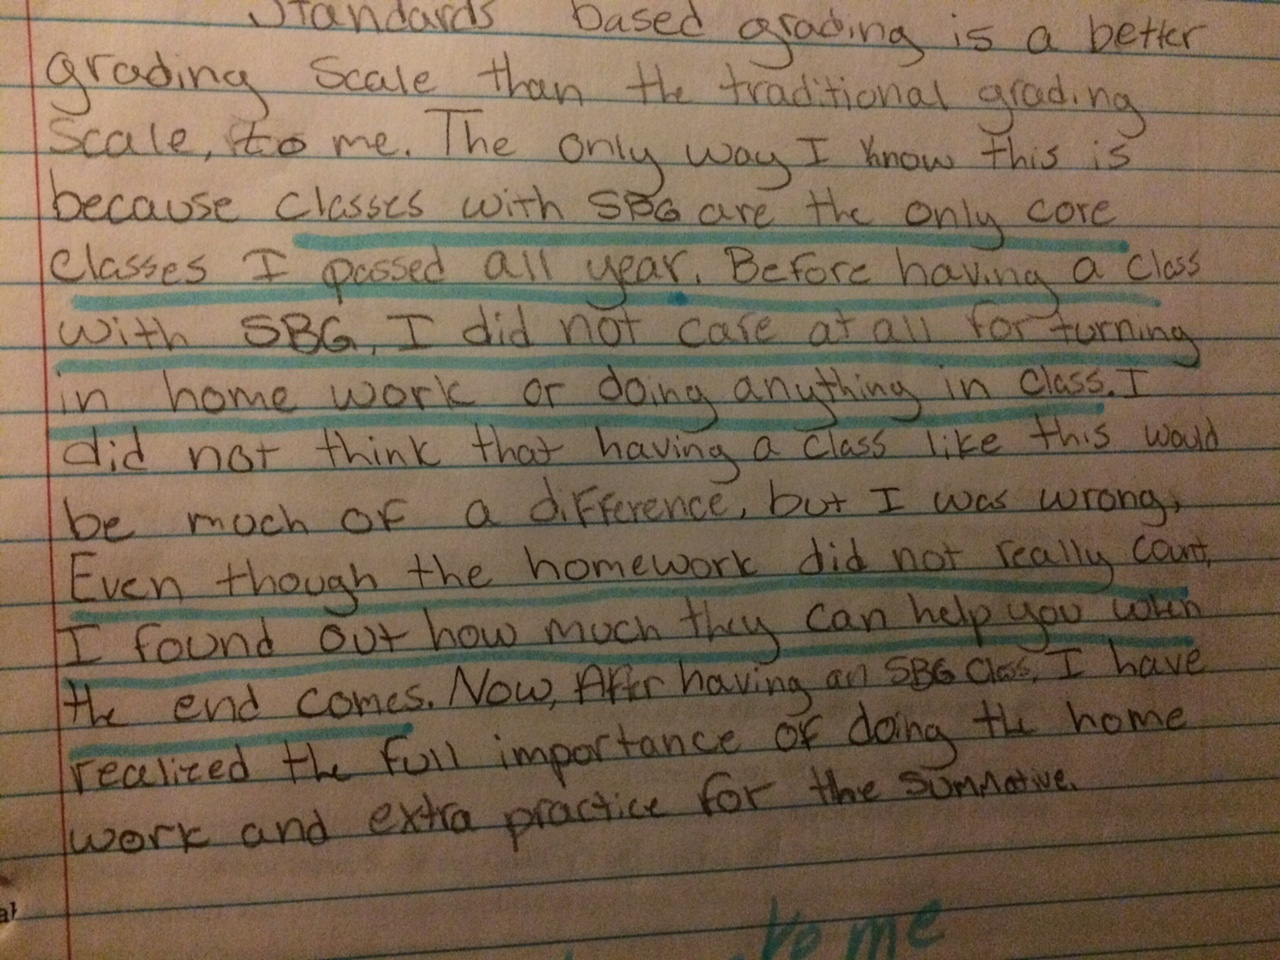 Standards based grading is a better
grading Scale than the traditional grading
Scale, to me. The only way I know this is
because classes with SBG are the only core
classes I passed all year. Before having a class
with SBG, I did not care at all for turning
in home work or doing anything in class. I
did not think that having a class like this would
be much of a difference, but I was wrong,
Even though the homework did not really count,
I found out how much they can help you when
the end comes. Now, After having an SBG class, I have
realized the full importance of doing the home
work and extra practice for the summative.
to me